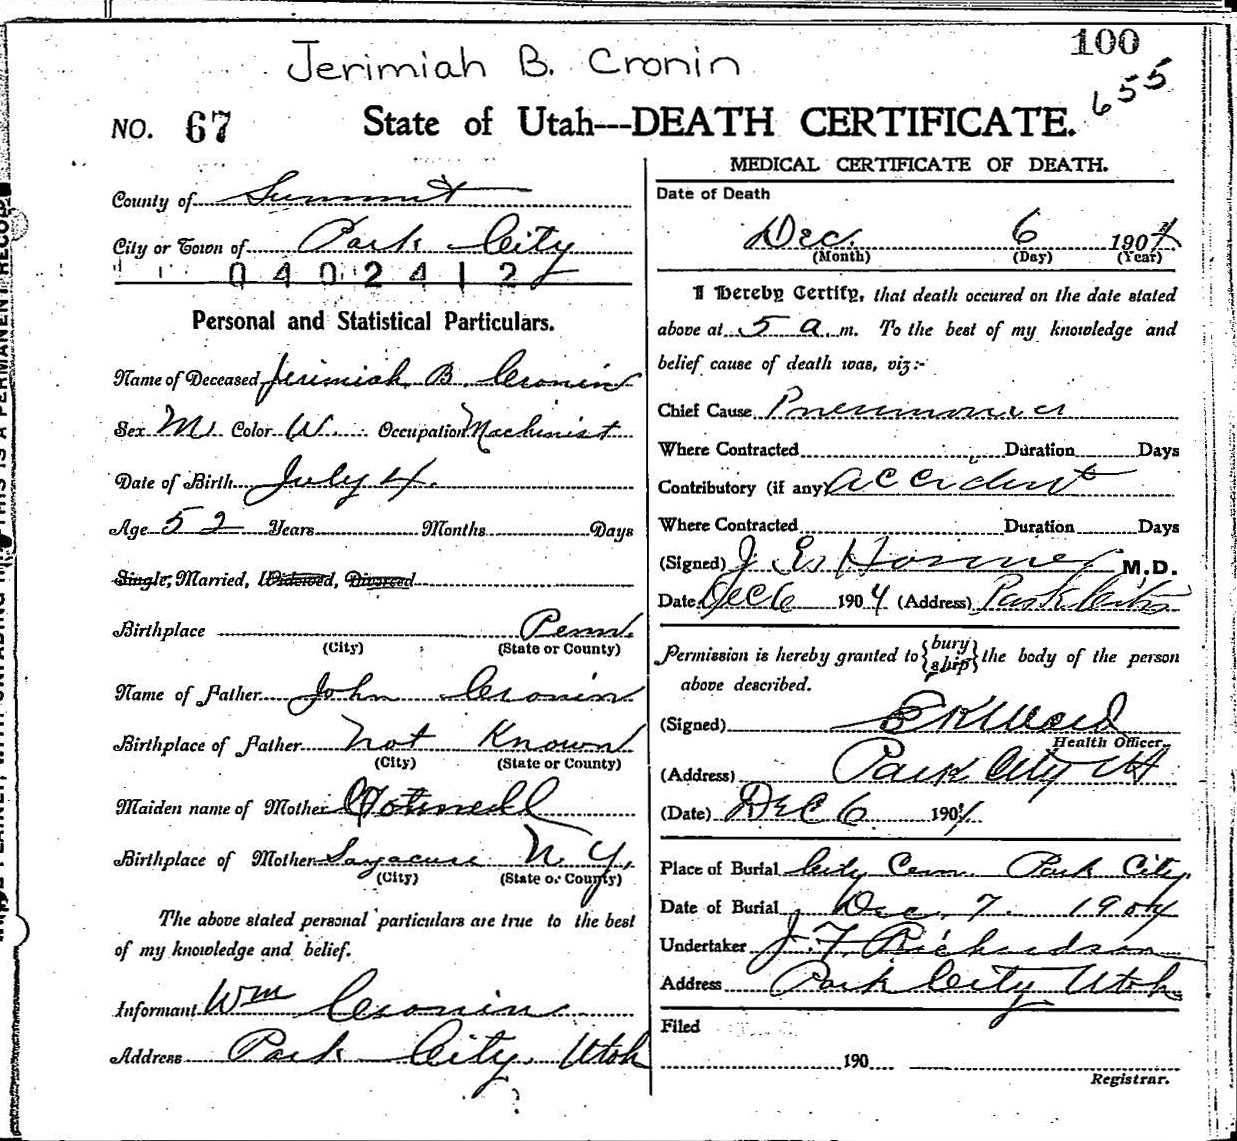 100
Jerimiah B. Cronin
655
NO. 67 State of Utah---DEATH CERTIFICATE.
County of Summit
City or Town of Park City
0402412
Personal and Statistical Particulars.
Name of Deceased Jerimiah B. Cronin
Sex M. Color W. Occupation Machinist
Date of Birth July 4.
Age 52 Years Months Days
Single, Married, Widowed, Divorced
Birthplace Penn.
(City) (State or County)
Name of Father John Cronin
Birthplace of Father Not Known
(City) (State or County)
Maiden name of Mother
Birthplace of Mother Sayacuse N. Y.
(City) (State or County)
The above stated personal particulars are true to the best
of my knowledge and belief.
Informant Wm Cronin
Address Park City, Utah
MEDICAL CERTIFICATE OF DEATH.
Date of Death
Dec. 6 1904
(Month) (Day) (Year)
I Hereby Certify, that death occured on the date stated
above at 5 a. m. To the best of my knowledge and
belief cause of death was, viz:-
Chief Cause Pneumonia
Where Contracted Duration Days
Contributory (if any) Accident
Where Contracted Duration Days
(Signed) J. E. M.D.
Date Dec 6 1904 (Address) Park City
Permission is hereby granted to {bury ship} the body of the person
above described.
(Signed) E K Ward
Health Officer.
(Address) Park City Ut
(Date) Dec 6 1904
Place of Burial City Cem. Park City.
Date of Burial Dec. 7. 1904
Undertaker J. F. Richardson
Address Park City Utah
Filed
190
Registrar.
THIS IS A PERMANENT RECORD